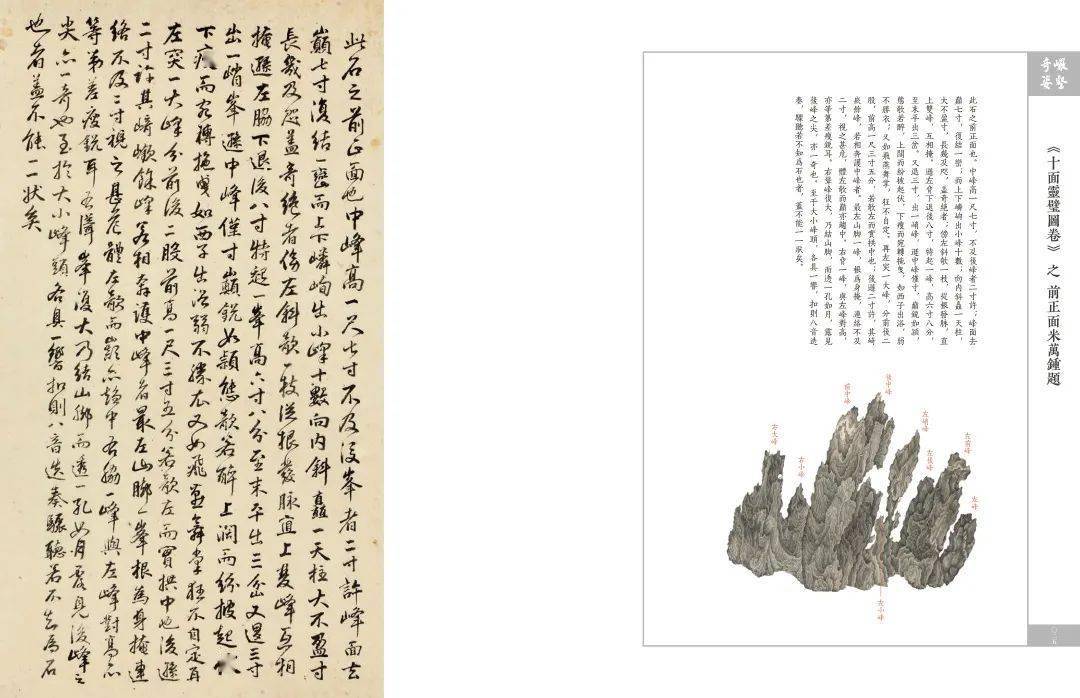 此石之前正面也中峰高一尺七寸不及後峯者二寸許峰面去
巔七寸復結一巒而上下嶙峋出小峰十數向内斜矗一天柱大不盈寸
長幾及咫蓋奇絕者傍左斜欹一枝從根發脉直上雙峰互相
掩遜左脇下退後八寸特起一峯高六寸八分至末平出三岔又退三寸
出一峭峯遜中峰僅寸巔銳如穎態欹若醉上闊而紛披起伏
下瘦而宛轉拖曳如西子出浴弱不勝衣又如飛燕舞掌狂不自定再
左突一大峰分前後二股前高一尺三寸五分若欹左而實拱中也後遜
二寸許其崎嶔餘峰若相奔護中峰者最左山腳一峯根為身掩連
絡不及二寸視之甚危體左欹而巔亦趨中右脇一峰與左峰對高亦
等第差瘦銳耳右聳峯復大乃結山腳而透一孔如月露見後峰之
尖亦一奇也至於大小峰頭各具一響扣則八音迭奏驟聽若不知為石
也者蓋不能一一狀矣
奇姿
《十面靈璧圖卷》之 前正面米萬鍾題
此石之前正面也。中峰高一尺七寸，不及後峰者二寸許；峰面去
巔七寸，復結一巒；而上下嶙峋出小峰十數；向内斜矗一天柱，
大不盈寸，長幾及咫，蓋奇絕者；傍左斜欹一枝，從根發脉，直
上雙峰，互相掩，遜左脅下退後八寸，特起一峰，高六寸八分，
至末平出三岔，又退三寸，出一峭峰，遜中峰僅寸，巔銳如穎，
態欹若醉，上闊而紛披起伏，下瘦而宛轉拖曳，如西子出浴，弱
不勝衣；又如飛燕舞掌，狂不自定。再左突一大峰，分前後二
股，前高一尺三寸五分，若欹左而實拱中也；後遜二寸許，其崎
嶔餘峰，若相奔護中峰者。最左山腳一峰，根為身掩，連絡不及
二寸，視之甚危，體左欹而巔亦趨中。右脅一峰，與左峰對高，
亦等第差瘦銳耳。右聳峰復大，乃結山腳，而透一孔如月，露見
後峰之尖，亦一奇也。至于大小峰頭，各具一響，扣則八音迭
奏，驟聽若不知為石也者，蓋不能一一狀矣。
後中峰
前中峰
左峭峰
左前峰
左後峰
右大峰
右小峰
左峰
左小峰